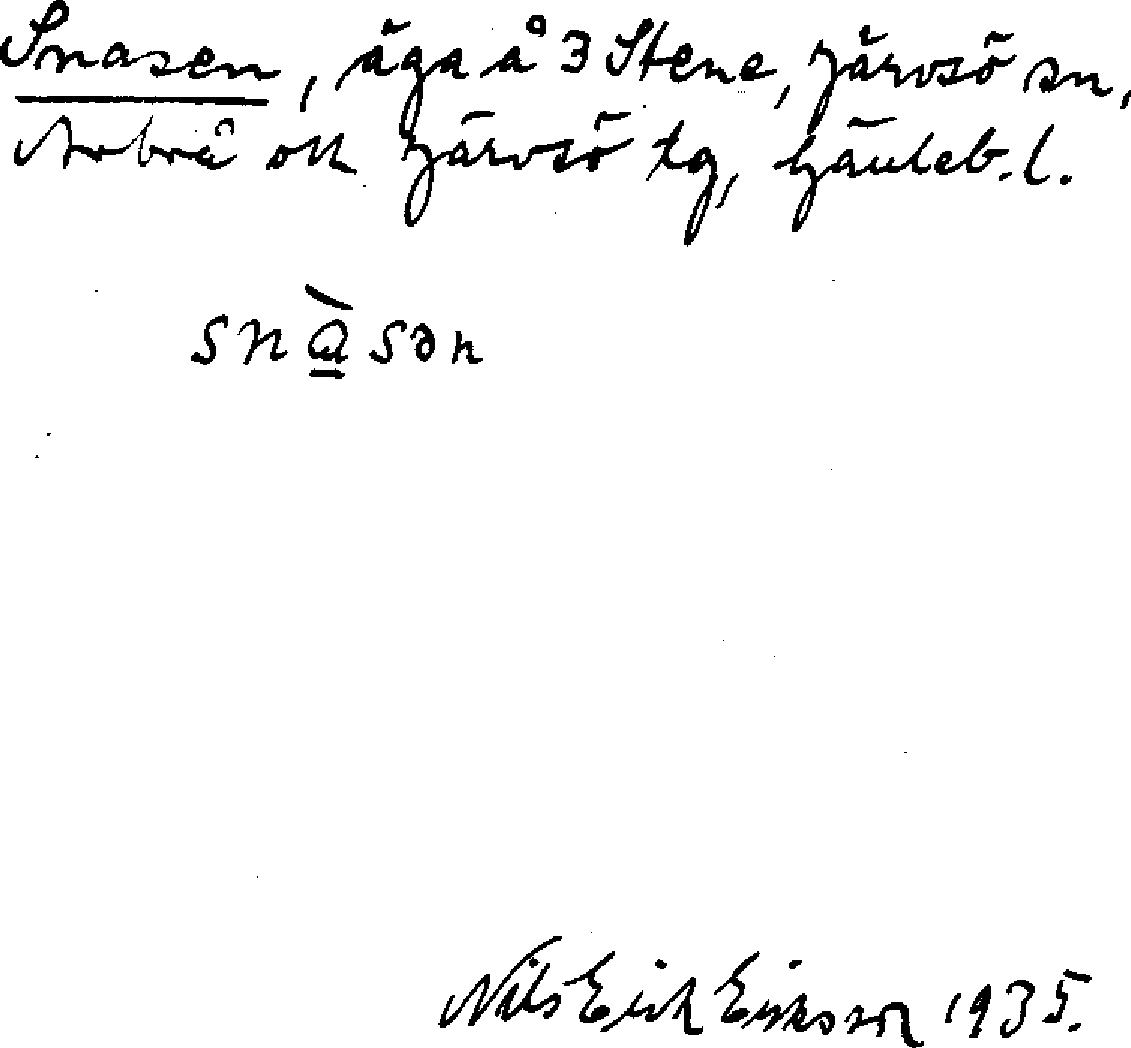 Snasen, äga å 3 Stene, Järvsö sn,
Arbrå och Järvsö tg, Gävleb. l.
snàsən
Nils Erik Eriksson 1935.